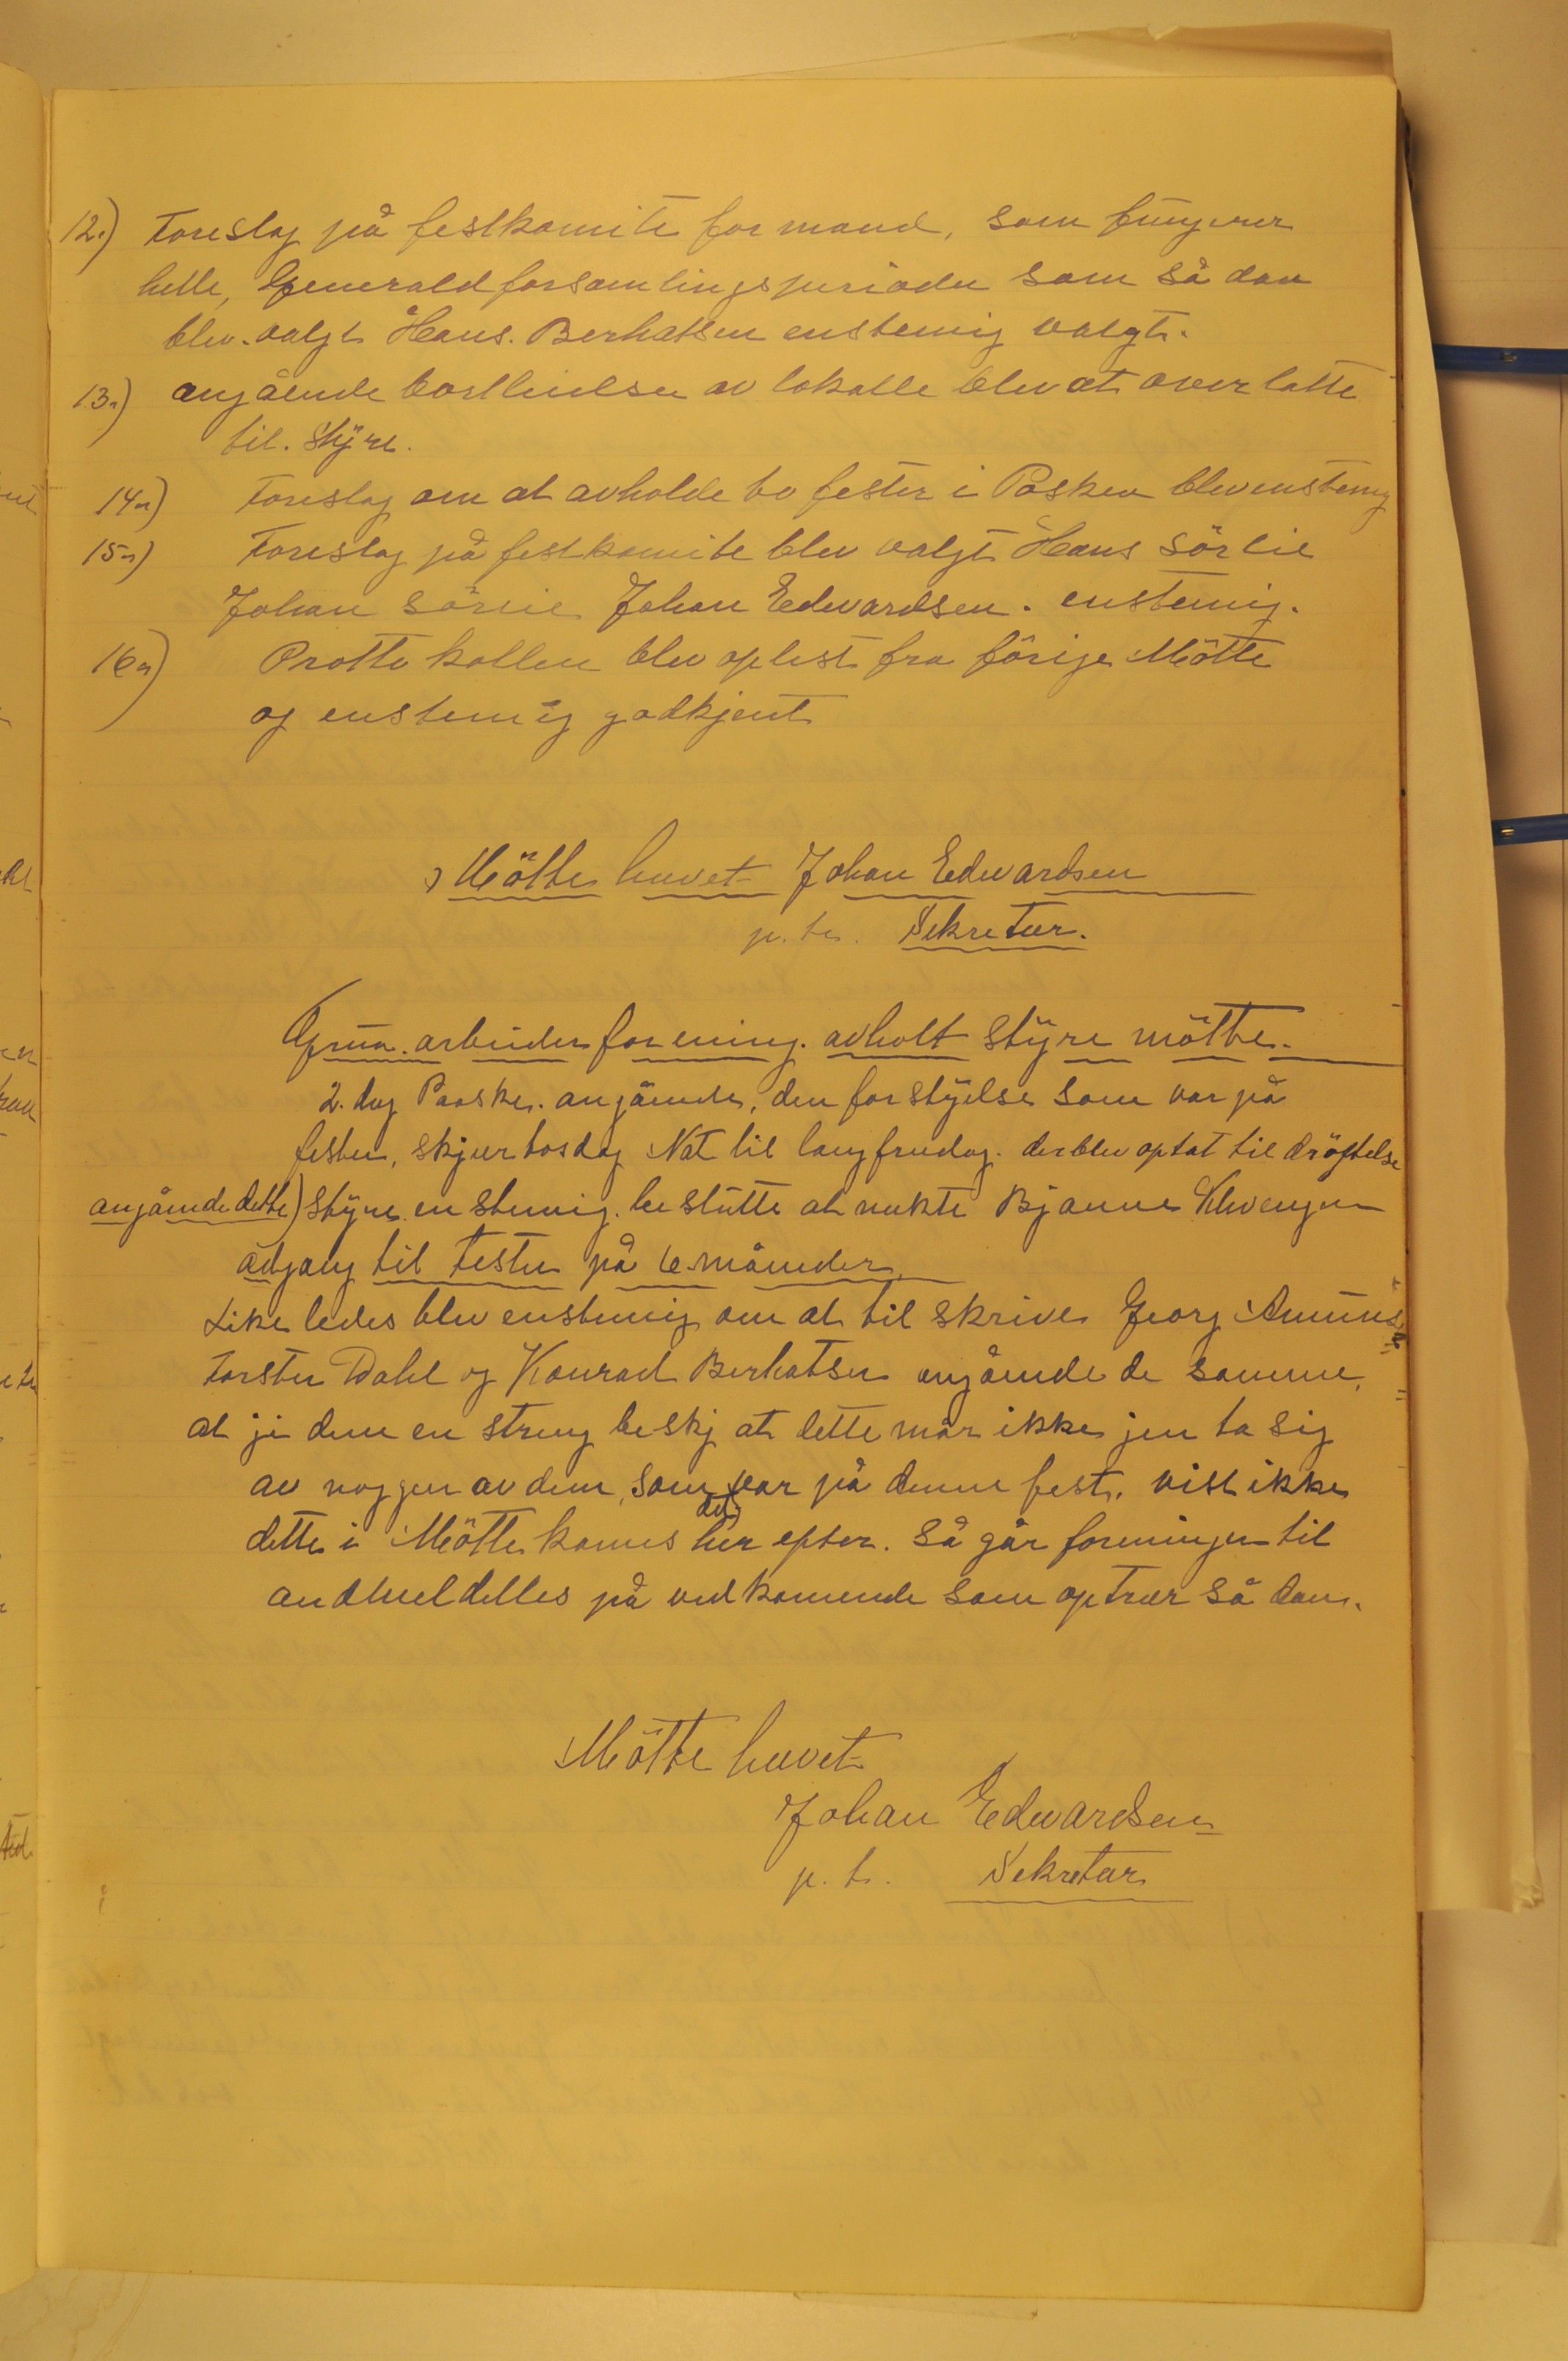 12.) Foreslag på festkomite formand, som fungerer
helle, Generaldforsamlingsperioden som så dan
blev. valgt Hans. Berhatsen enstemig valgt.
13.) angående bortleielsen av lokalle blev at overlatte
til. Styre.
14.) Foreslag om at avholde to fester i Påsken blev enstemig
15.) Foreslag på festkomite blev valgt Hans Sörlie
Johan Sörlie Johan Edwardsen. enstemig.
16.) Protto kollen blev oplest fra förige Mötte
og enstemig godkjent
Mötte hevet Johan Edwardsen
p.t. Sekretær.
Grua. arbeider forening. avholt styre mötte.
2. dag Paaske. angående, den forstyelse som var på
festen, skjærtosdag Nat til langfredag. der blev optat til dröftelse
angående dette) styre. enstemig. beslutte at nekte Bjarne
adgang til Festen på 6 måneder.
Like ledes blev enstemig om at til skrive Georg
Torsten Dahl og Konrad Berhatsen angående de samme,
at ji dem en streng beskj at dette mår ikke jen ta sig
av noggen av dem, som var på denne fest. vist ikke
dette i Mötte komes det her efter. Så går foreningen til
andmeldelles på vedkomende som optrær så dan.
Mötte hevet
Johan Edwardsen
p.t. Sekretær